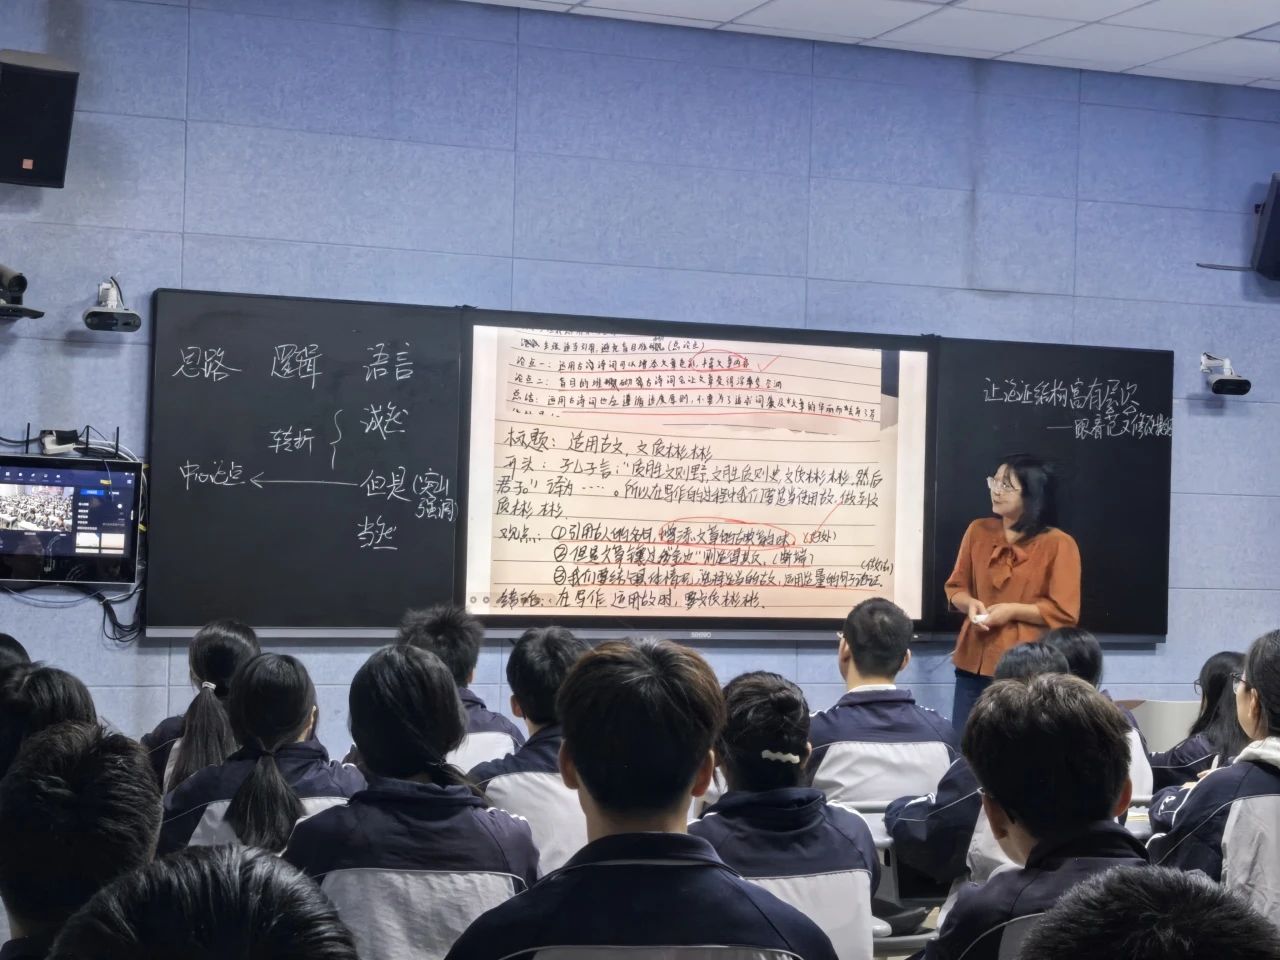 思路 逻辑 语言
诚然
转折
中心论点 但是(突出
强调)
当然
论点一：运用古诗词可以增添文章色彩,丰富文章内容
论点二：盲目的堆砌古诗词会让文章变得浮夸空洞
总结：运用古诗词也应遵循适度原则,不要为了追求词藻
标题：适用古文,文质彬彬
开头：孔子言："质胜文则野,文胜质则史,文质彬彬,然后
君子。"译为……。所以在写作的过程中我们要适当使用故,做到文
质彬彬.
观点：①引用古人的名句,增添文章的古典韵味.(好处)
②但是文章
③我们要结合具体情况,选择适当的古文,运用适量的句子论证.
(做法)
结论：在写作运用故时,要文质彬彬.
让论证结构富有层次
——跟着范文修改提纲
SEEWO